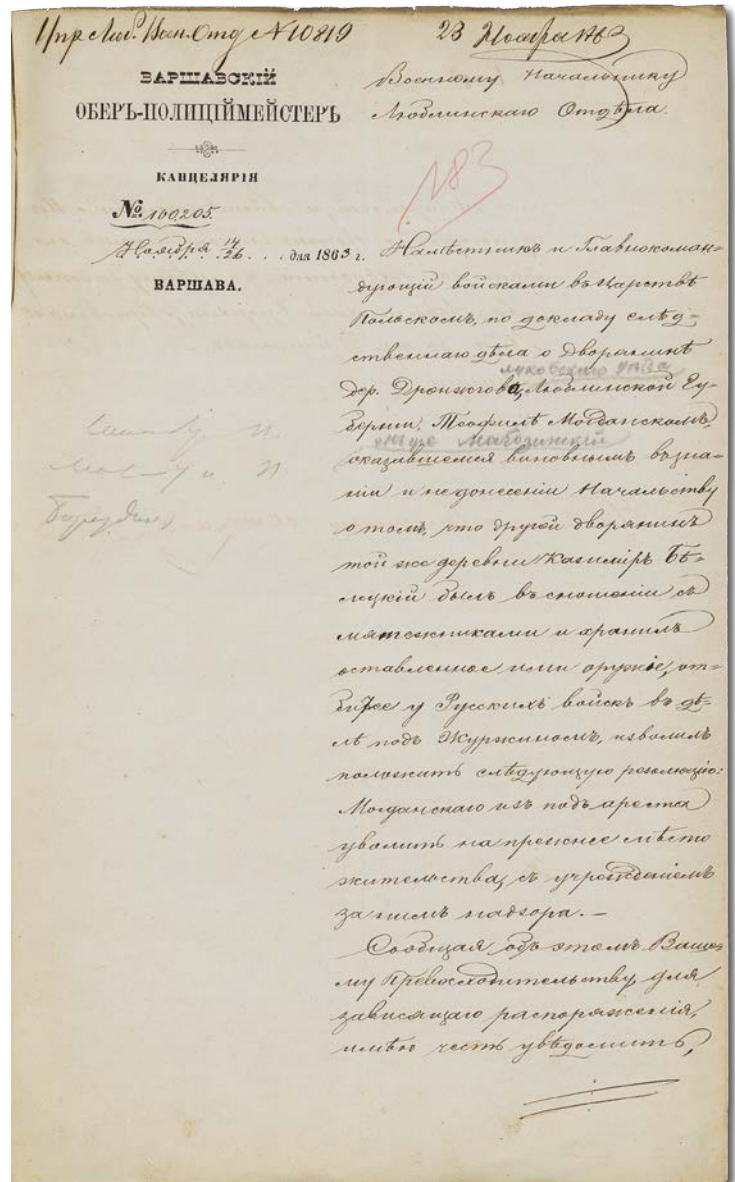 № 10819
23 Ноября 1863
ВАРШАВСКІЙ
ОБЕРЪ-ПОЛИЦІЙМЕЙСТЕРЪ
КАНЦЕЛЯРІЯ
№ 100205.
Ноября 14/26 . . . дня 1863 г.
ВАРШАВА.
Военному Начальнику
Люблинскаго Отдѣла.
183
Намѣстникъ и Главнокоман=
дующій войсками въ Царствѣ
Польскомъ, по докладу слѣд=
ственнаго дѣла о Дворянинѣ
луковскаго уѣзда
дер. Дронжгова, Люблинской Гу=
берніи, Теофилѣ Могданскомъ,
оказавшемся виновнымъ въ зна=
ніи и недонесеніи Начальству
о томъ, что другой дворянинъ
той же деревни Казиміръ Бѣ=
лецкій былъ въ сношеніи съ
мятежниками и хранилъ
оставленное ими оружіе, от=
битое у Русскихъ войскъ въ дѣ=
лѣ подъ Журжиномъ, изволилъ
положить слѣдующую резолюцію:
Могданскаго изъ подъ ареста
уволить на прежнее мѣсто
жительства, съ учрежденіемъ
за нимъ надзора. —
Сообщая объ этомъ Ваше=
му Превосходительству для
зависящаго распоряженія,
имѣю честь увѣдомить,